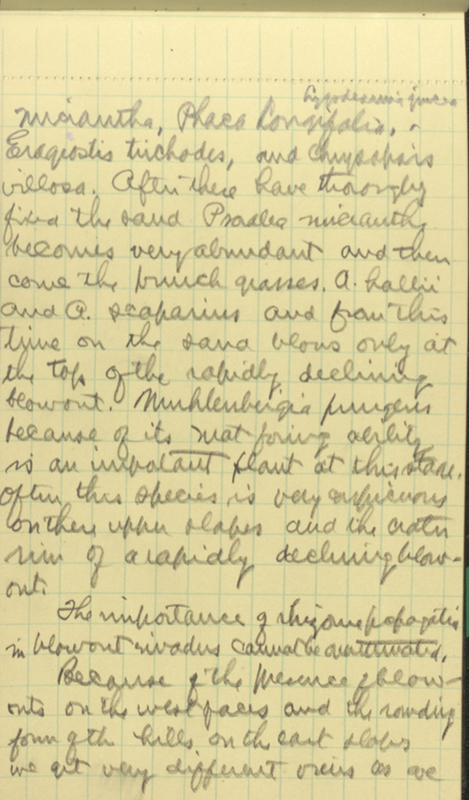 Lygodesmia juncea
micrantha, Phaca longifolia,
Eragrostis trichodes, and Chrysopsis
villosa. After these have thorougly
fixed the sand Psoralea micrantha
becomes very abundant and then
come the bunch grasses. A. hallii
and A. scoparius and from this
time on the sand blows only at
the top of the rapidly declining
blowout. Muhlenbergia pungens
because of its mat foring ability
is an impotant plant at this stage.
Often this species is very conspicuous
on these upper slopes and the crater
rim of a rapidly declining blow-
out.
The importance of rhizome propagation
in blowout invaders cannot be overestimated.
Because of the presence of blow-
outs on the west faces and the rounding
form of the hills on the east slopes
we get very different views as we